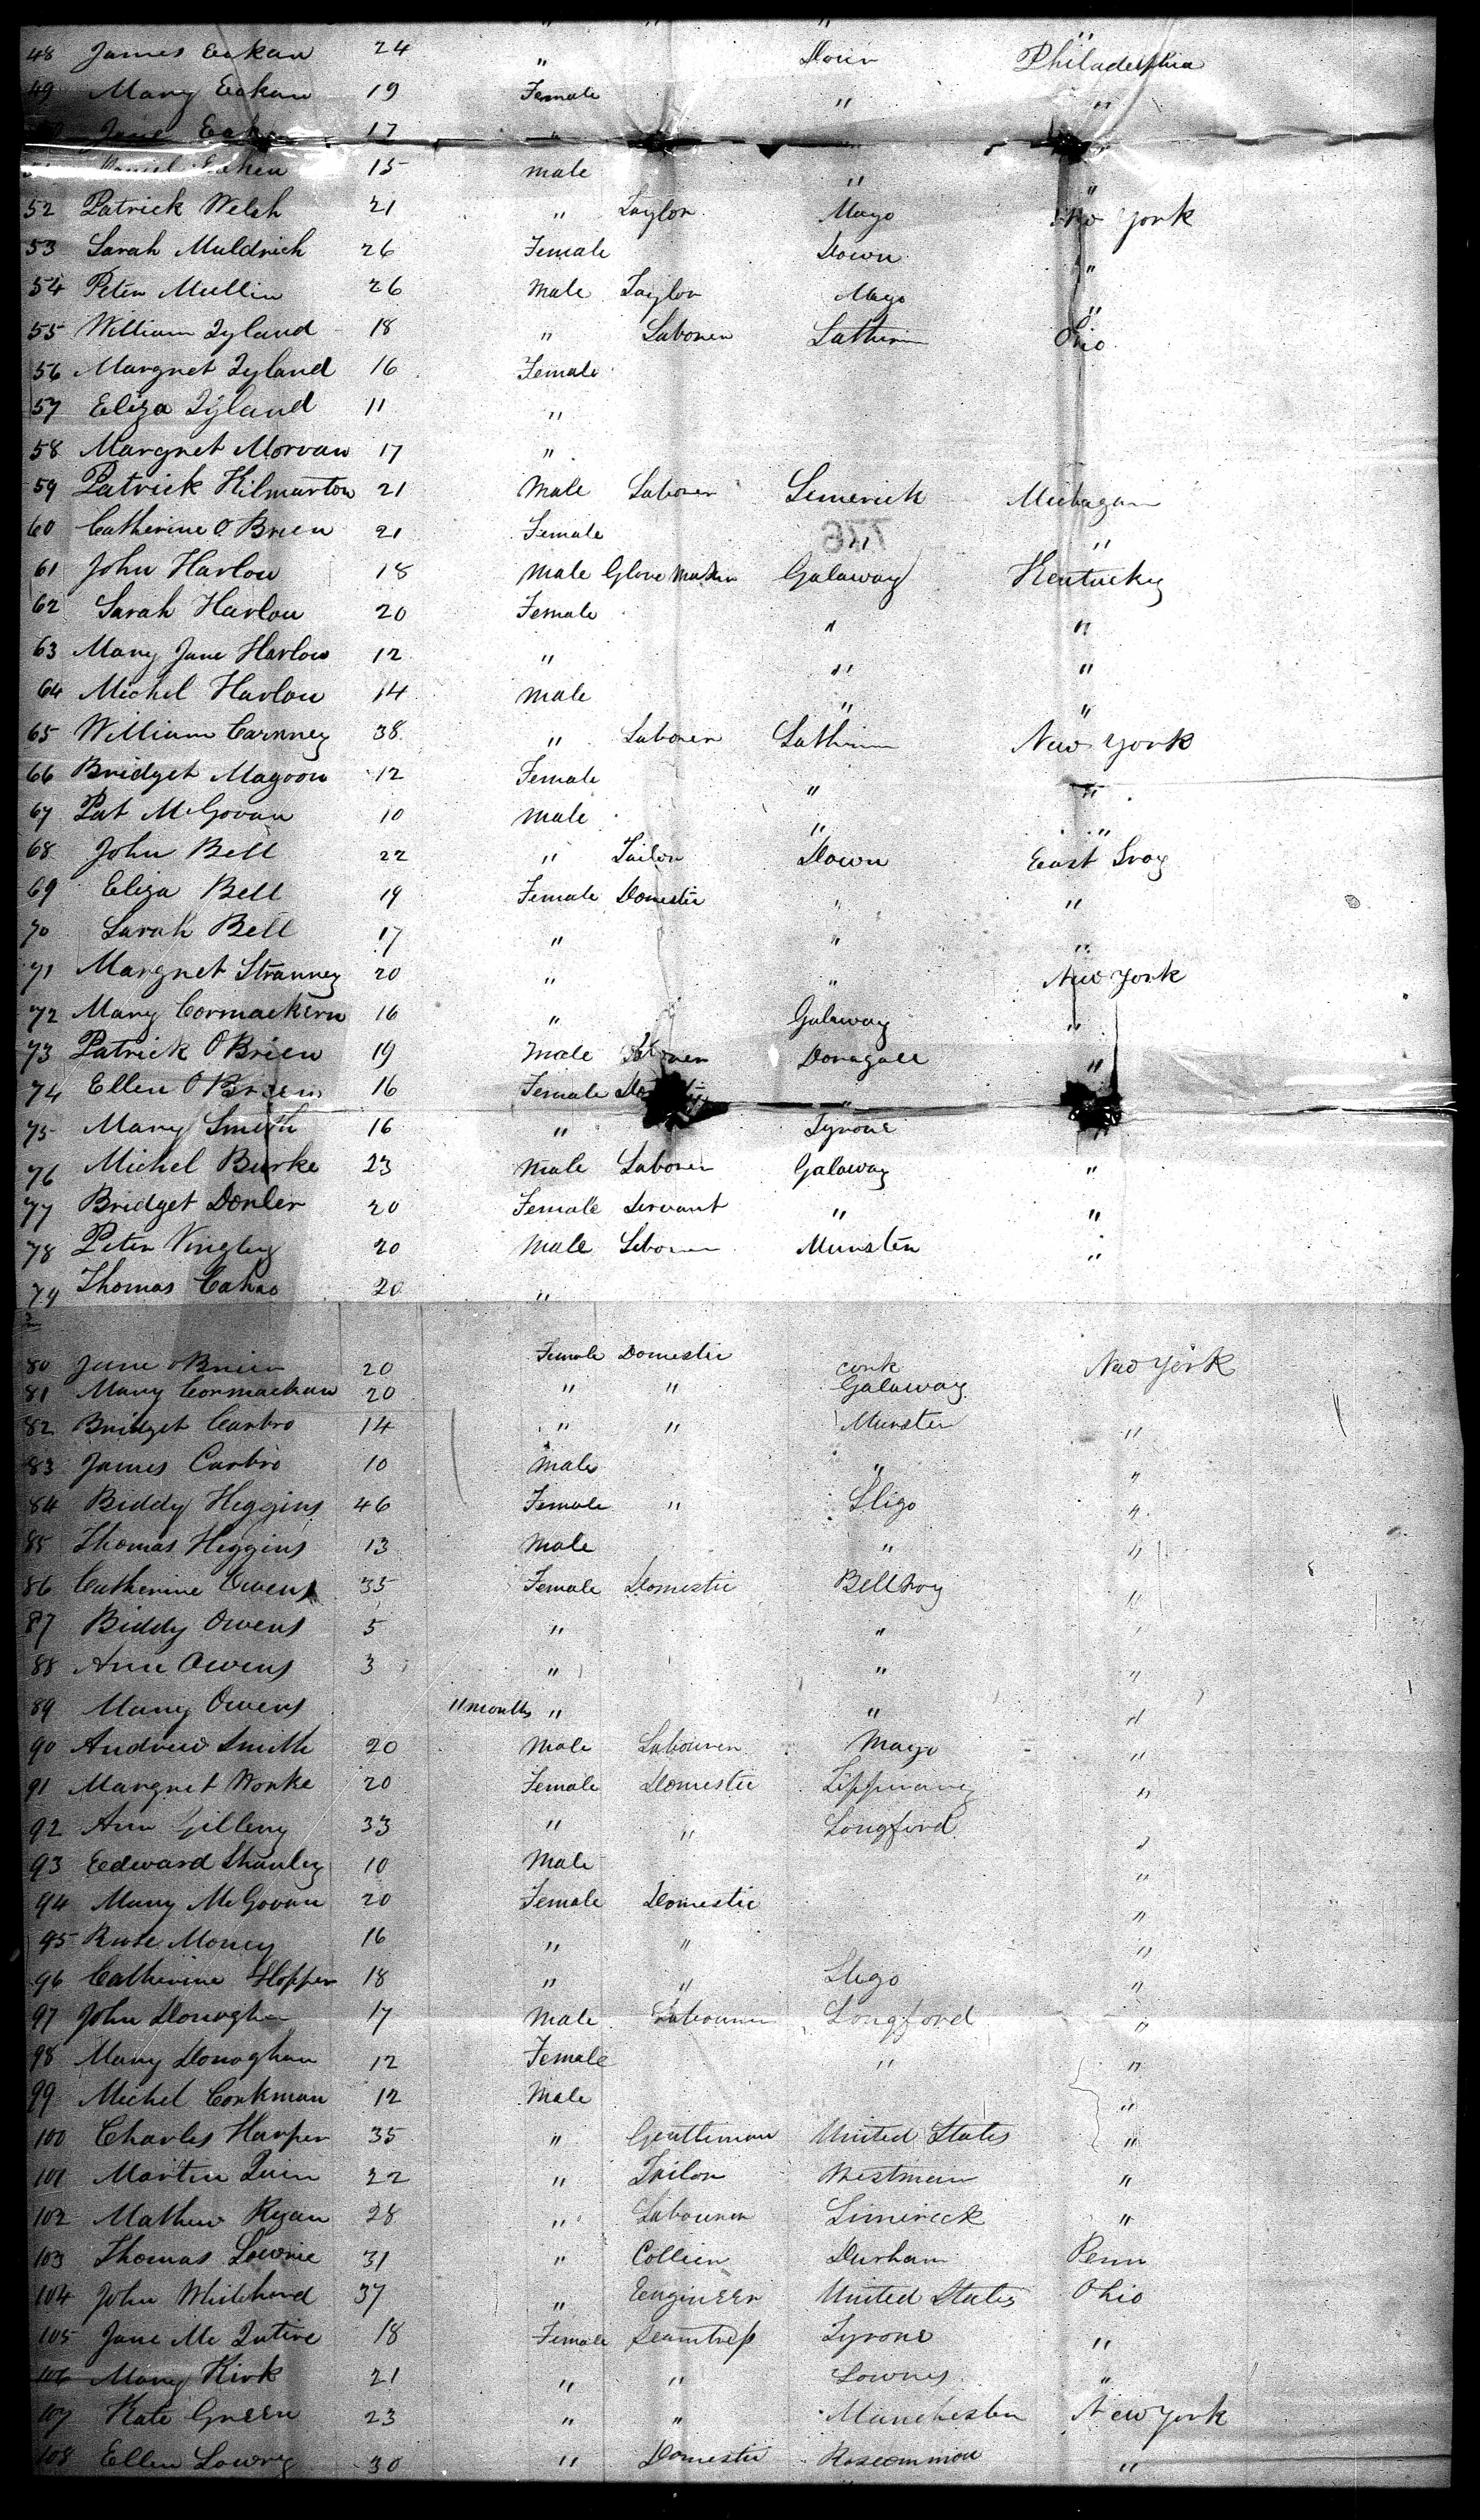 " " " "
48 James Eakan 24 " Down Philadelphia
49 Mary Eakan 19 Female " "
Jane 17 "
Eaken 15 male " "
52 Patrick Welsh 21 " Taylor Mayo New York
53 Sarah Muldrich 26 Female Down "
54 Peter Mullin 26 Male Taylor Mayo "
55 William Tyland 18 " Laborer Lathrim Ohio
56 Margnet Tyland 16 Female
57 Eliza Tyland 11 "
58 Margnet Morvan 17 "
59 Patrick Kilmarton 21 Male Laborer Limerick Michagan
60 Catherine O Brien 21 Female " "
61 John Harlow 18 Male Glove Maker Galaway Kentucky
62 Sarah Harlow 20 Female " "
63 Mary Jane Harlow 12 " " "
64 Michel Harlow 14 male " "
65 William Carnney 38 " Laborer Lathrim New York
66 Bridget Magoon 12 Female " "
67 Pat McGovan 10 male " "
68 John Bell 22 " Tailor Down East Troy
69 Eliza Bell 19 Female Domestic " "
70 Sarah Bell 17 " " "
71 Margnet Stranney 20 " " New York
72 Mary Cormackern 16 " Galaway "
73 Patrick O Brien 19 Male Laborer Donagall "
74 Ellen O Brien 16 Female "
75 Mary Smith 16 " Tyrone "
76 Michel Burke 23 Male Laborer Galaway "
77 Bridget Donler 20 Female Servant " "
78 Peter Vingley 20 Male Laborer Munster "
79 Thomas Cahao 20 "
80 Jane O Brien 20 Female Domestic Cork New York
81 Mary Cormackan 20 " " Galaway
82 Bridget Carbro 14 " " Munster "
83 James Carbro 10 Male " "
84 Biddy Higgins 46 Female " Sligo "
85 Thomas Higgins 13 Male " "
86 Catherine Owens 35 Female Domestic Bellhoy "
87 Biddy Owens 5 " " "
88 Ann Owens 3 " " "
89 Mary Owens 11 months " " "
90 Andrew Smith 20 Male Labourer Mayo "
91 Margnet Worke 20 Female Domestic "
92 Ann Gilleny 33 " " Longford "
93 Eedward Shanley 10 Male "
94 Mary McGovan 20 Female Domestic "
95 Rose Money 16 " " "
96 Catherine Hopper 18 " " Sligo "
97 John Donaghan 17 Male Labourer Longford "
98 Mary Donaghan 12 Female " "
99 Michel Corkman 12 Male "
100 Charles Harper 35 " Gentleman United States "
101 Martin Quin 22 " Tailor Westmein "
102 Mathew Ryan 28 " Labourer Limirick "
103 Thomas Lowrie 31 " Collier Durham Penn
104 John Whitehead 37 " Eengineer United States Ohio
105 Jane Mc Intire 18 Female Seamtress Tyrone "
106 Mary Kirk 21 " " Lownes "
107 Kate Green 23 " " Manchester New York
108 Ellen Lowry 30 " Domestic Roscommon "